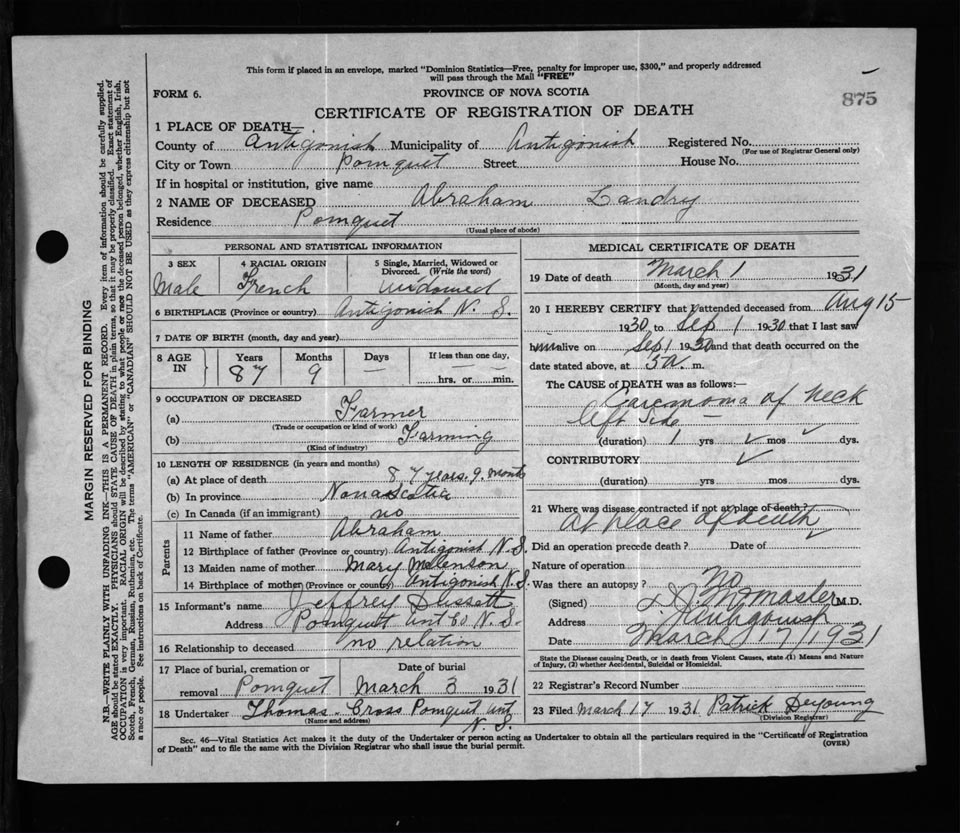 This form if placed in an envelope, marked "Dominion Statistics—Free, penalty for improper use, $300," and properly addressed
will pass through the Mail "FREE"
FORM 6.
PROVINCE OF NOVA SCOTIA
875
CERTIFICATE OF REGISTRATION OF DEATH
1 PLACE OF DEATH—
County of Antigonish Municipality of Antigonish Registered No.
(For use of Registrar General only)
City or Town Pomquet Street House No.
If in hospital or institution, give name
2 NAME OF DECEASED Abraham Landry
Residence Pomquet
(Usual place of abode)
PERSONAL AND STATISTICAL INFORMATION
3 SEX 4 RACIAL ORIGIN 5 Single, Married, Widowed or
Divorced. (Write the word)
Male French Widowed
6 BIRTHPLACE (Province or country) Antigonish N. S.
7 DATE OF BIRTH (month, day and year)
8 AGE IN Years Months Days If less than one day,
87 9 — hrs. or min.
9 OCCUPATION OF DECEASED
(a) Farmer
(Trade or occupation or kind of work)
(b) Farming
(Kind of industry)
10 LENGTH OF RESIDENCE (in years and months)
(a) At place of death 87 years. 9. months
(b) In province Nova Scotia
(c) In Canada (if an immigrant) no
Parents
11 Name of father Abraham
12 Birthplace of father (Province or country) Antigonish N.S.
13 Maiden name of mother Mary Melenson
14 Birthplace of mother (Province or country) Antigonish N.S.
15 Informant's name Jeffrey
Address Pomquet Ant Co N.S.
16 Relationship to deceased no relation
17 Place of burial, cremation or Date of burial
removal Pomquet March 3 1931
18 Undertaker Thomas Cross Pomquet Ant
(Name and address) N.S.
MEDICAL CERTIFICATE OF DEATH
19 Date of death March 1 1931
(Month, day and year)
20 I HEREBY CERTIFY that I attended deceased from Aug 15
1930 to Sep 1 1930 that I last saw
him alive on Sep 1 1930 and that death occurred on the
date stated above, at 5 a. m.
The CAUSE of DEATH was as follows:—
Carcinoma of neck
left side —
(duration) 1 yrs mos dys.
CONTRIBUTORY
(duration) yrs mos dys.
21 Where was disease contracted if not at place of death?
At place of death
Did an operation precede death? Date of
Nature of operation
Was there an autopsy? No
(Signed) McMaster M.D.
Address Antigonish
Date March 17/1931
State the Disease causing Death, or in death from Violent Causes, state (1) Means and Nature
of Injury, (2) whether Accidental, Suicidal or Homicidal.
22 Registrar's Record Number
23 Filed March 17 1931 Patrick Deyoung
(Division Registrar)
Sec. 46—Vital Statistics Act makes it the duty of the Undertaker or person acting as Undertaker to obtain all the particulars required in the "Certificate of Registration
of Death" and to file the same with the Division Registrar who shall issue the burial permit.
(OVER)
MARGIN RESERVED FOR BINDING
N.B.—WRITE PLAINLY WITH UNFADING INK—THIS IS A PERMANENT RECORD. Every item of information should be carefully supplied.
AGE should be stated EXACTLY. PHYSICIANS should STATE CAUSE OF DEATH in plain terms, so that it may be properly classified. Exact statement of
OCCUPATION is very important. RACIAL ORIGIN will be described by stating to what people or race the deceased person belonged, whether English, Irish,
Scotch, French, German, Russian, Ruthenian, etc. The terms "AMERICAN" or "CANADIAN" SHOULD NOT BE USED as they express citizenship but not
a race or people. See instructions on back of Certificate.